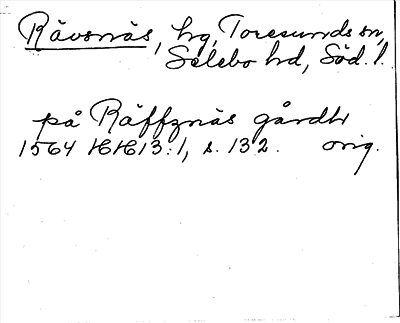 Rävsnäs, hg, Toresunds sn,
Selebo hd, Söd. l.
på Räffznäs gårdh
1564 HH13:1, s. 132. orig.